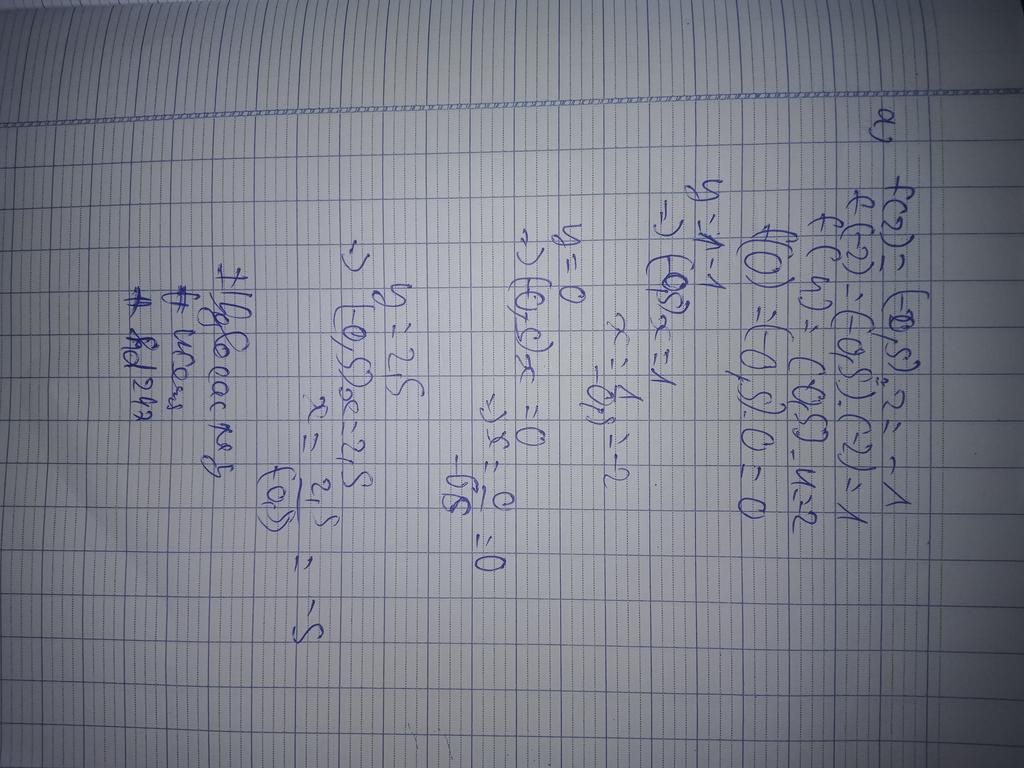 a) f(2) = (-0,5).2 = -1
f(-2) = (-0,5).(-2) = 1
f(4) = (-0,5).4 = 2
f(0) = (-0,5).0 = 0
y = -1
=> (-0,5)x = 1
x = 1/-0,5 = -2
y = 0
=> (-0,5)x = 0
x = 0/-0,5 = 0
y = 2,5
=> (-0,5)x = 2,5
x = 2,5/(-0,5) = -5